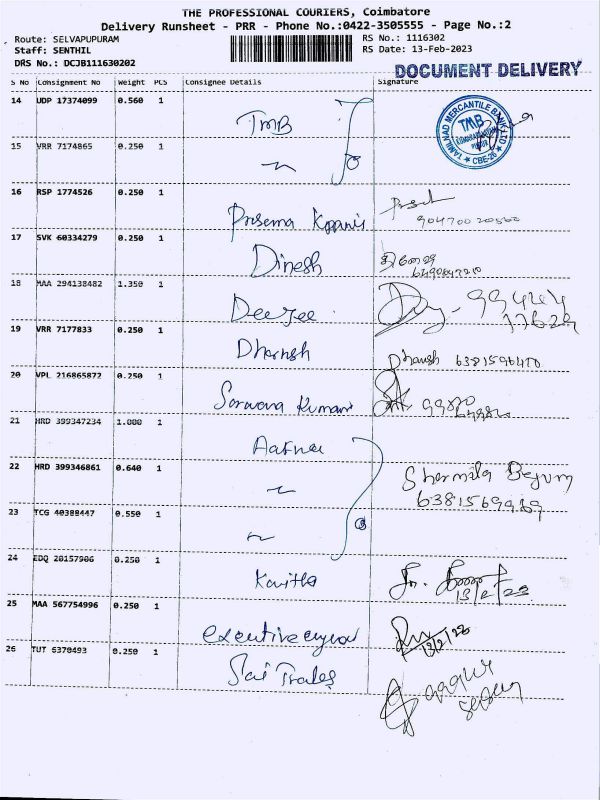 THE PROFESSIONAL COURIERS, Coimbatore
Delivery Runsheet - PRR - Phone No.:0422-3505555 - Page No.:2
Route: SELVAPUPURAM
Staff: SENTHIL
DRS No.: DCJB111630202
RS No.: 1116302
RS Date: 13-Feb-2023
DOCUMENT DELIVERY
S No Consignment No Weight PCS Consignee Details Signature
14 UDP 17374099 0.560 1 TMB
TAMILNAD MERCANTILE BANK LTD TMB CBE-26
15 VRR 7174865 0.250 1
16 RSP 1774526 0.250 1 Prisema
17 SVK 60334279 0.250 1 Dinesh
18 MAA 294138482 1.350 1 Deejee
19 VRR 7177833 0.250 1 Dhanush Dhanush
20 VPL 216865872 0.250 1 Saravana Kumari
21 HRD 399347234 1.000 1
22 HRD 399346861 0.640 1 Sharmila Begum
23 TCG 40388447 0.550 1
24 EDQ 20157906 0.250 1 Kavitha 13/2/23
25 MAA 567754996 0.250 1 executive 13/2/23
26 TUT 6370493 0.250 1 Sai Trades